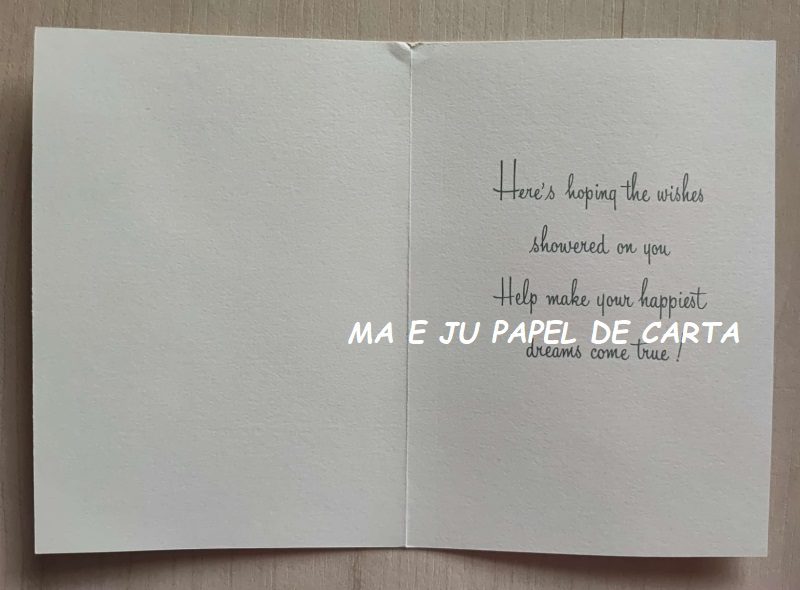 Here's hoping the wishes
showered on you
Help make your happiest
MA E JU PAPEL DE CARTA
dreams come true!